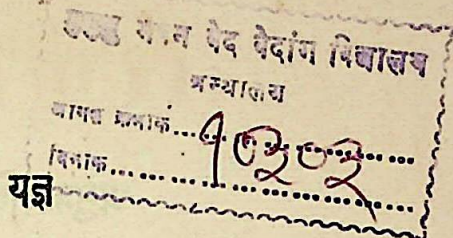 वेद वेदांग विद्यालय
ग्रन्थालय
आगत क्रमांक....१७२०२....
दिनांक....
यज्ञ